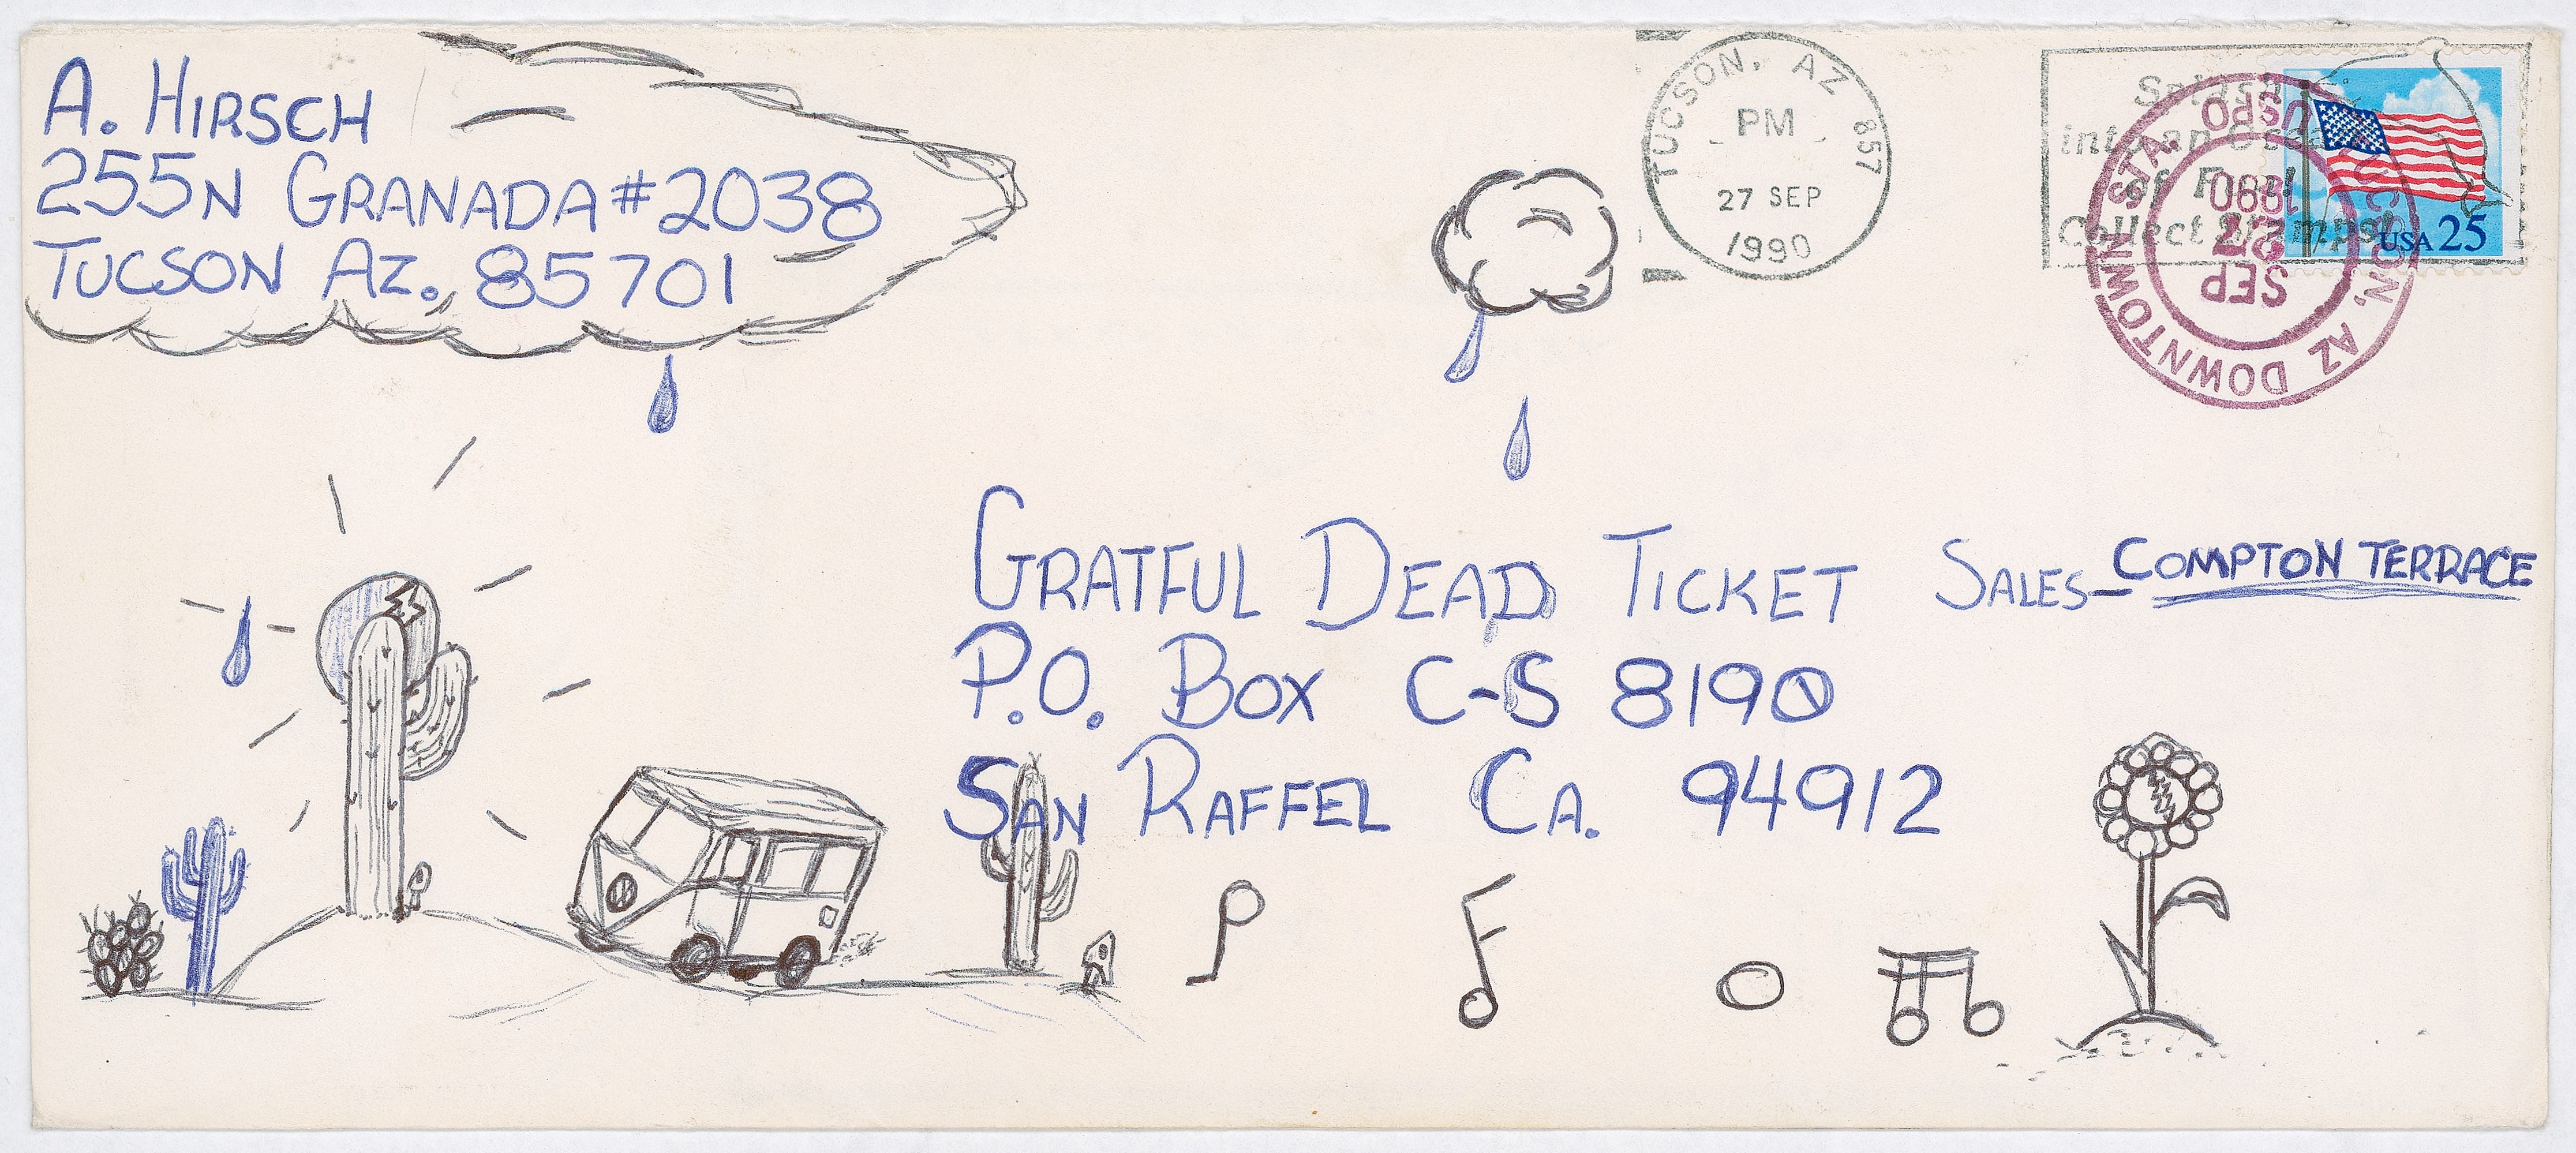 A. HIRSCH
255N GRANADA #2038
TUCSON AZ. 85701
TUCSON, AZ 857
PM
27 SEP
1990
Splash
into an Ocean
of Fun!
Collect Stamps!
USA 25
TUCSON, AZ DOWNTOWN STA.
USPO
SEP
27
1990
GRATFUL DEAD TICKET SALES-COMPTON TERRACE
P.O. BOX C-S 8190
SAN RAFFEL CA. 94912